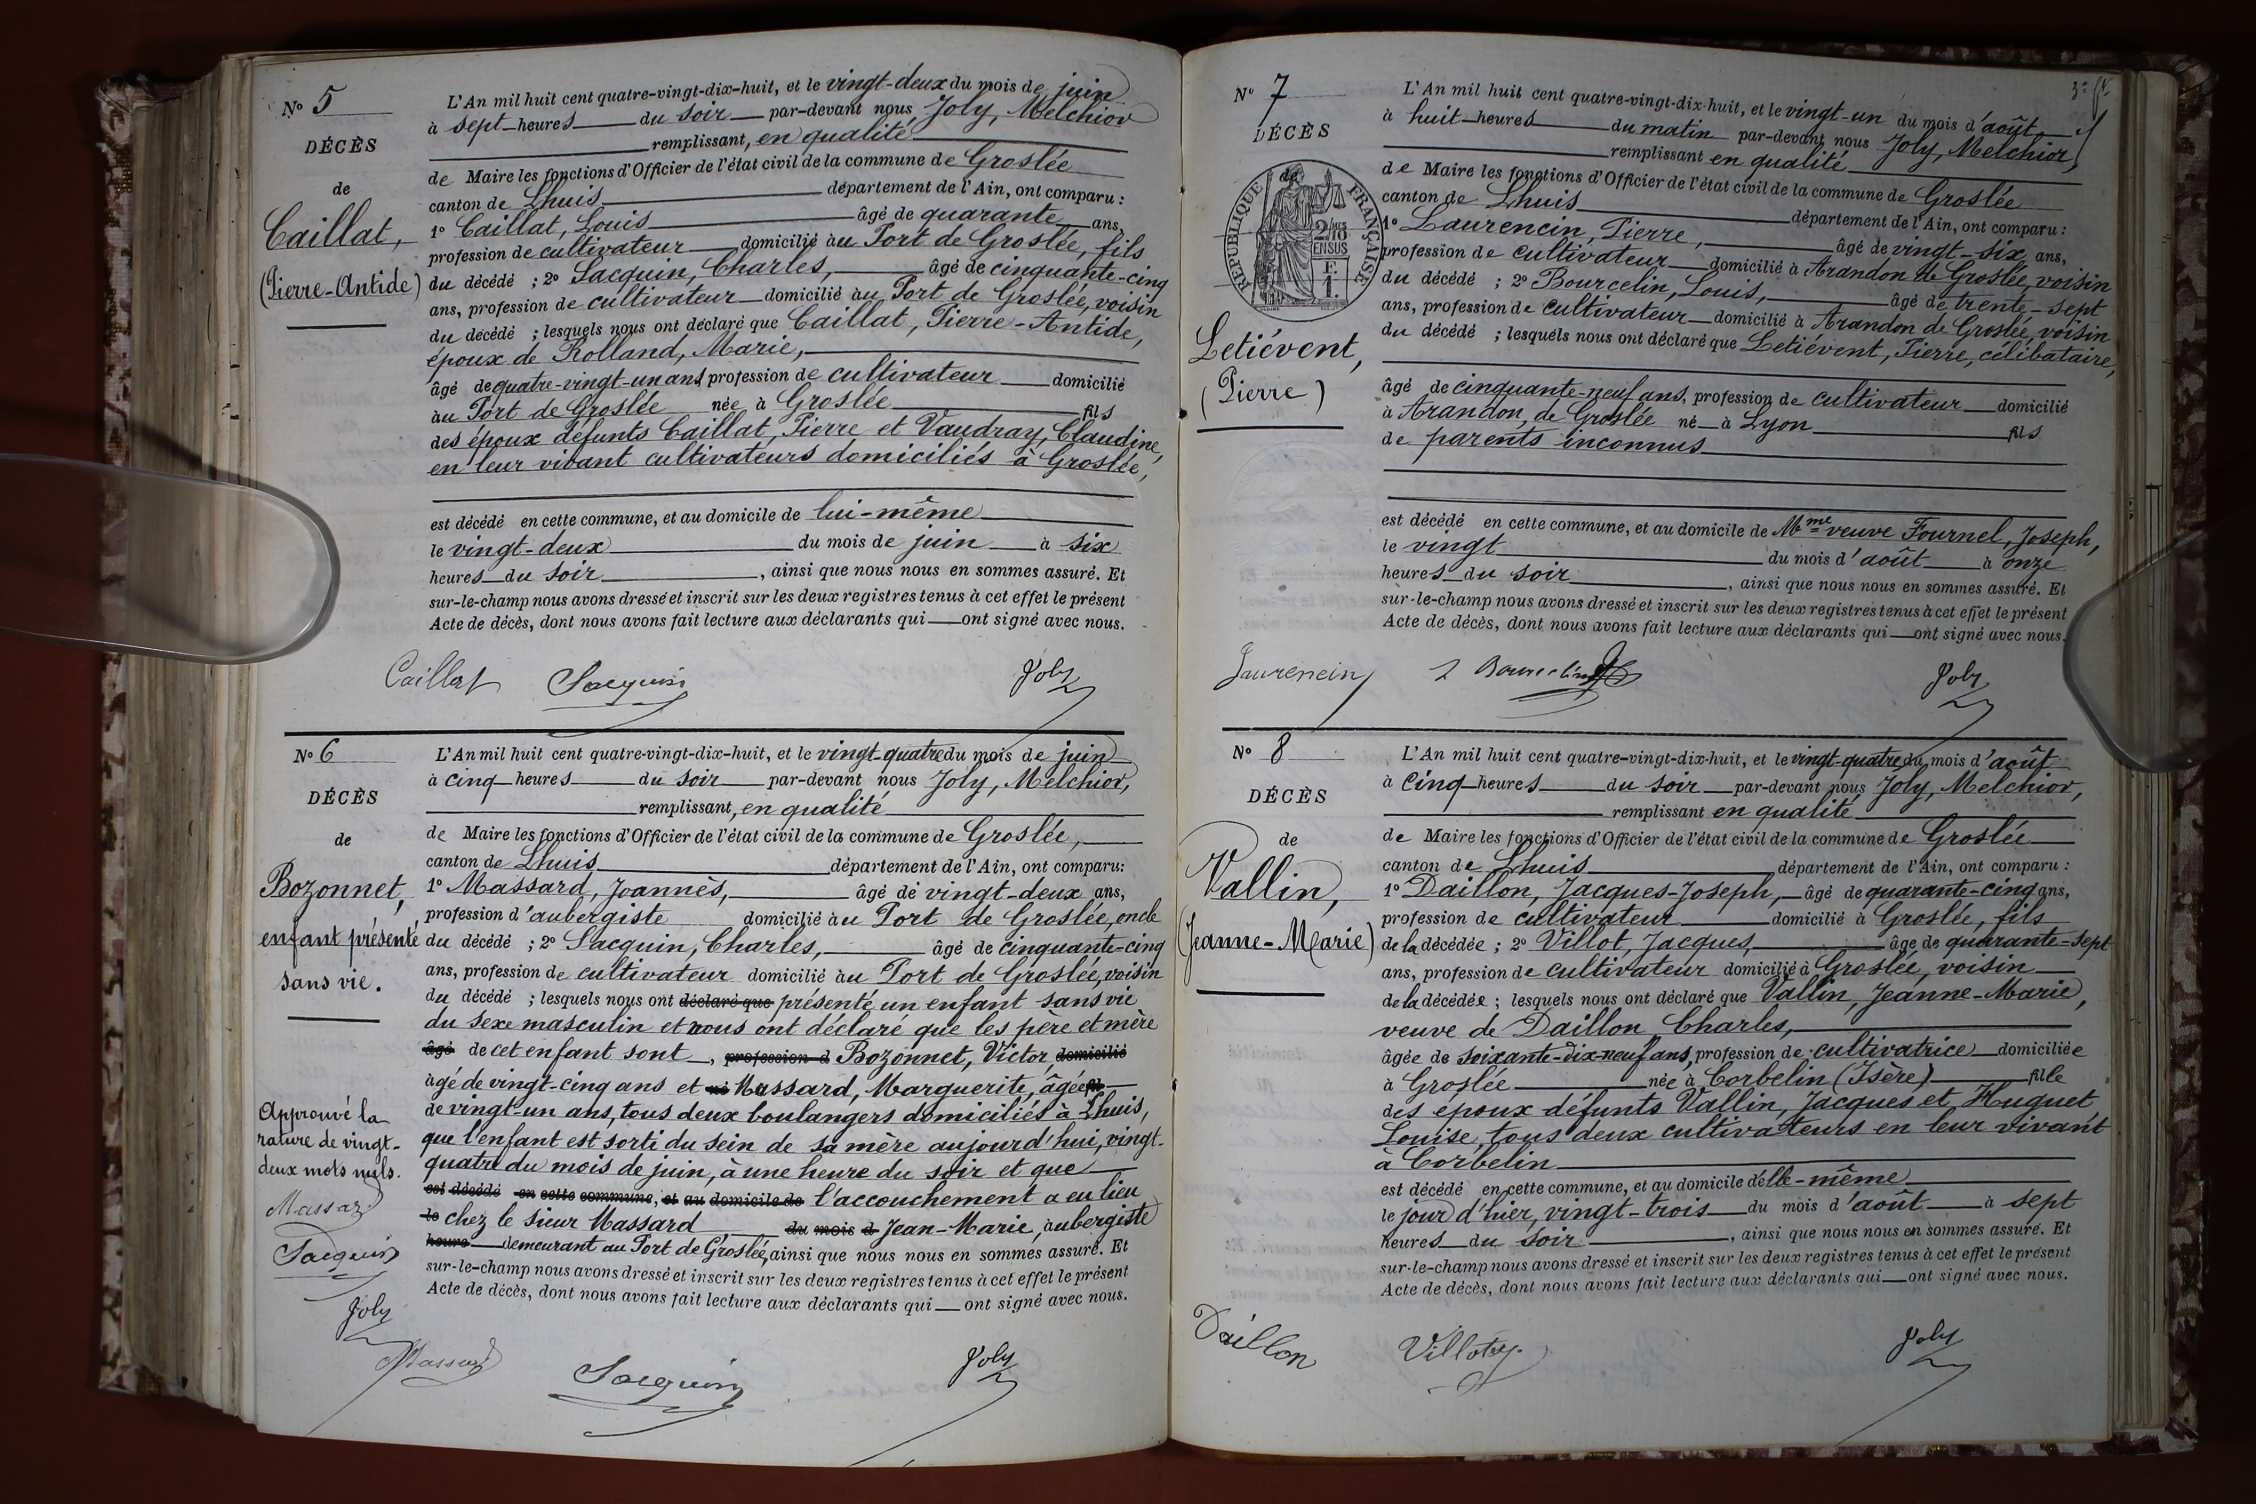 N° 5
DÉCÈS
de
Caillat,
(Pierre-Antide)
L'An mil huit cent quatre-vingt-dix-huit, et le vingt-deux du mois de juin
à sept heures du soir par-devant nous Joly, Melchior
remplissant, en qualité
de Maire les fonctions d'Officier de l'état civil de la commune de Groslée
canton de Lhuis département de l'Ain, ont comparu :
1° Caillat, Louis âgé de quarante ans,
profession de cultivateur domicilié au Port de Groslée, fils
du décédé ; 2° Sacquin, Charles, âgé de cinquante-cinq
ans, profession de cultivateur domicilié au Port de Groslée, voisin
du décédé ; lesquels nous ont déclaré que Caillat, Pierre-Antide,
époux de Rolland, Marie,
âgé de quatre-vingt-un ans profession de cultivateur domicilié
au Port de Groslée née à Groslée fils
des époux défunts Caillat, Pierre et Vaudray, Claudine,
en leur vivant cultivateurs domiciliés à Groslée,
est décédé en cette commune, et au domicile de lui-même
le vingt-deux du mois de juin à six
heures du soir, ainsi que nous nous en sommes assuré. Et
sur-le-champ nous avons dressé et inscrit sur les deux registres tenus à cet effet le présent
Acte de décès, dont nous avons fait lecture aux déclarants qui ont signé avec nous.
Caillat Sacquin Joly
N° 6
DÉCÈS
de
Bozonnet,
enfant présenté
sans vie.
Approuvé la
rature de vingt-
deux mots nuls.
Massard
Sacquin
Joly
L'An mil huit cent quatre-vingt-dix-huit, et le vingt-quatre du mois de juin
à cinq heures du soir par-devant nous Joly, Melchior,
remplissant, en qualité
de Maire les fonctions d'Officier de l'état civil de la commune de Groslée,
canton de Lhuis département de l'Ain, ont comparu:
1° Massard, Joannès, âgé de vingt-deux ans,
profession d'aubergiste domicilié au Port de Groslée, oncle
du décédé ; 2° Sacquin, Charles, âgé de cinquante-cinq
ans, profession de cultivateur domicilié au Port de Groslée, voisin
du décédé ; lesquels nous ont déclaré que présenté un enfant sans vie
du sexe masculin et nous ont déclaré que les père et mère
âgé de cet enfant sont, profession d Bozonnet, Victor, domicilié
âgé de vingt-cinq ans et né Massard, Marguerite, âgée
de vingt-un ans, tous deux boulangers domiciliés à Lhuis,
que l'enfant est sorti du sein de sa mère aujourd'hui, vingt-
quatre du mois de juin, à une heure du soir et que
est décédé en cette commune, et au domicile de l'accouchement a eu lieu
le chez le sieur Massard du mois d Jean-Marie, aubergiste
heure demeurant au Port de Groslée, ainsi que nous nous en sommes assuré. Et
sur-le-champ nous avons dressé et inscrit sur les deux registres tenus à cet effet le présent
Acte de décès, dont nous avons fait lecture aux déclarants qui ont signé avec nous.
Massard Sacquin Joly
N° 7
DÉCÈS
de
RÉPUBLIQUE FRANÇAISE
2/10 EN SUS
Letiévent,
(Pierre)
L'An mil huit cent quatre-vingt-dix-huit, et le vingt-un du mois d'août
à huit heures du matin par-devant nous Joly, Melchior,
remplissant en qualité
de Maire les fonctions d'Officier de l'état civil de la commune de Groslée
canton de Lhuis département de l'Ain, ont comparu :
1° Laurencin, Pierre, âgé de vingt-six ans,
profession de cultivateur domicilié à Arandon de Groslée, voisin
du décédé ; 2° Bourcelin, Louis, âgé de trente-sept
ans, profession de cultivateur domicilié à Arandon de Groslée, voisin
du décédé ; lesquels nous ont déclaré que Letiévent, Pierre, célibataire,
âgé de cinquante-neuf ans, profession de cultivateur domicilié
à Arandon, de Groslée né à Lyon fils
de parents inconnus
est décédé en cette commune, et au domicile de Mme veuve Fournel, Joseph,
le vingt du mois d'août à onze
heures du soir, ainsi que nous nous en sommes assuré. Et
sur-le-champ nous avons dressé et inscrit sur les deux registres tenus à cet effet le présent
Acte de décès, dont nous avons fait lecture aux déclarants qui ont signé avec nous.
Laurencin L Bourcelin Joly
N° 8
DÉCÈS
de
Vallin,
(Jeanne-Marie)
L'An mil huit cent quatre-vingt-dix-huit, et le vingt-quatre du mois d'août
à cinq heures du soir par-devant nous Joly, Melchior,
remplissant en qualité
de Maire les fonctions d'Officier de l'état civil de la commune de Groslée
canton de Lhuis département de l'Ain, ont comparu :
1° Daillon, Jacques-Joseph, âgé de quarante-cinq ans,
profession de cultivateur domicilié à Groslée, fils
de la décédée ; 2° Villot, Jacques, âgé de quarante-sept
ans, profession de cultivateur domicilié à Groslée, voisin
de la décédée ; lesquels nous ont déclaré que Vallin, Jeanne-Marie,
veuve de Daillon Charles,
âgée de soixante-dix-neuf ans, profession de cultivatrice domiciliée
à Groslée née à Corbelin (Isère) fille
des époux défunts Vallin, Jacques et Huguet
Louise, tous deux cultivateurs en leur vivant
à Corbelin
est décédé en cette commune, et au domicile d'elle-même
le jour d'hier, vingt-trois du mois d'août à sept
heures du soir, ainsi que nous nous en sommes assuré. Et
sur-le-champ nous avons dressé et inscrit sur les deux registres tenus à cet effet le présent
Acte de décès, dont nous avons fait lecture aux déclarants qui ont signé avec nous.
Daillon Villot Joly